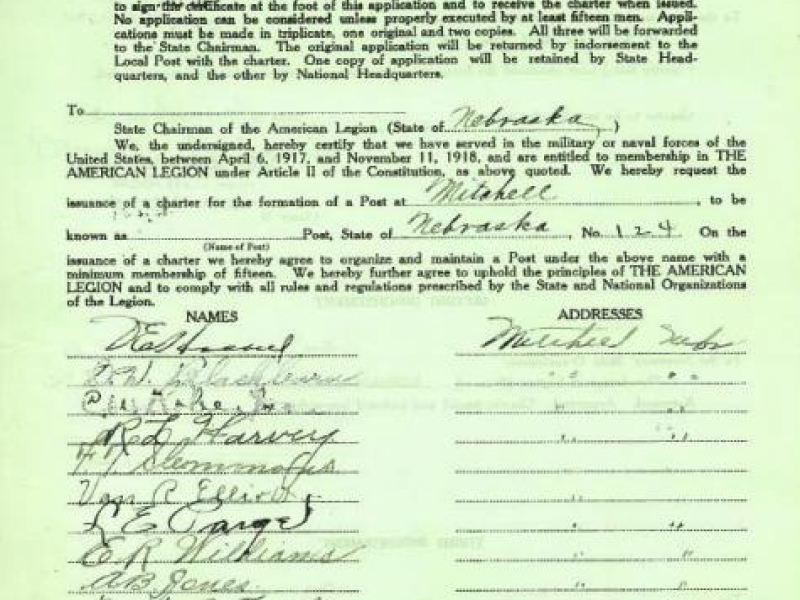 to sign the certificate at the foot of this application and to receive the charter when issued.
No application can be considered unless properly executed by at least fifteen men. Appli-
cations must be made in triplicate, one original and two copies. All three will be forwarded
to the State Chairman. The original application will be returned by indorsement to the
Local Post with the charter. One copy of application will be retained by State Head-
quarters, and the other by National Headquarters.
To
State Chairman of the American Legion (State of Nebraska)
We, the undersigned, hereby certify that we have served in the military or naval forces of the
United States, between April 6, 1917, and November 11, 1918, and are entitled to membership in THE
AMERICAN LEGION under Article II of the Constitution, as above quoted. We hereby request the
issuance of a charter for the formation of a Post at Mitchell, to be
known as Post, State of Nebraska, No. 124 On the
(Name of Post)
issuance of a charter we hereby agree to organize and maintain a Post under the above name with a
minimum membership of fifteen. We hereby further agree to uphold the principles of THE AMERICAN
LEGION and to comply with all rules and regulations prescribed by the State and National Organizations
of the Legion.
NAMES ADDRESSES
Mitchell Nebr
" "
" "
R L Harvey " "
Van R Elliott "
L E " "
E R Williams " "
A B Jones " "